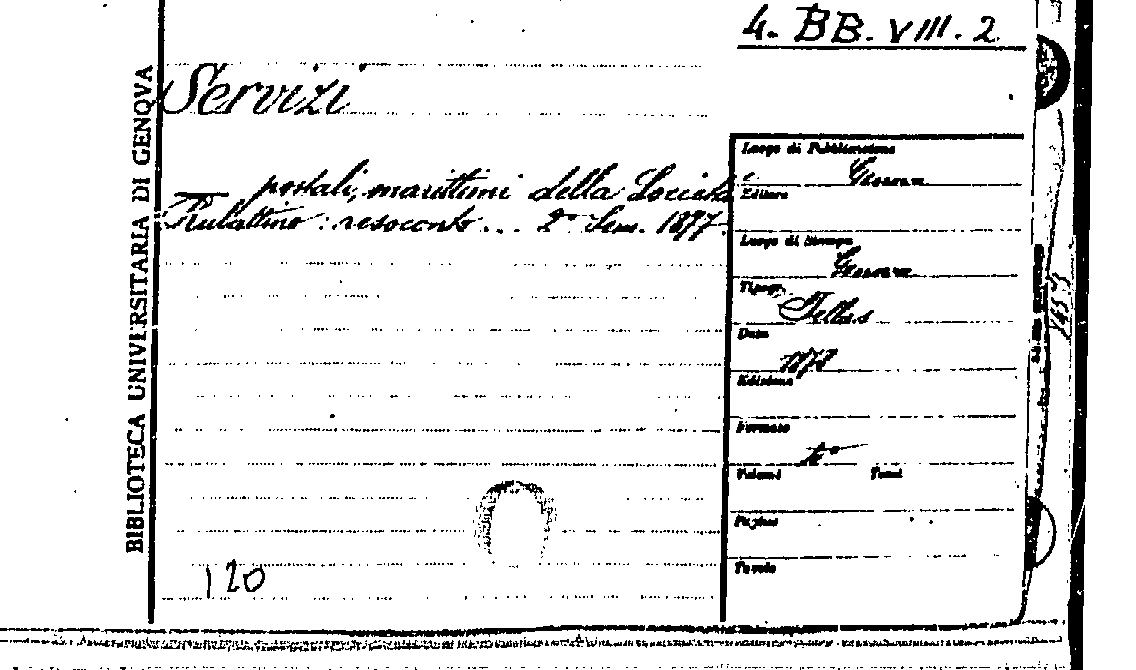 4. BB. VIII. 2
BIBLIOTECA UNIVERSITARIA DI GENOVA
Servizi
postali, marittimi della Società
Rubattino: resoconto... 2° Sem. 1877.
Luogo di Pubblicazione
Genova
Editore
Luogo di Stampa
Genova
Tipogr.
Pellas
Data
1878
Edizione
Formato
4°
Volumi Tomi
Pagine
Tavole
120